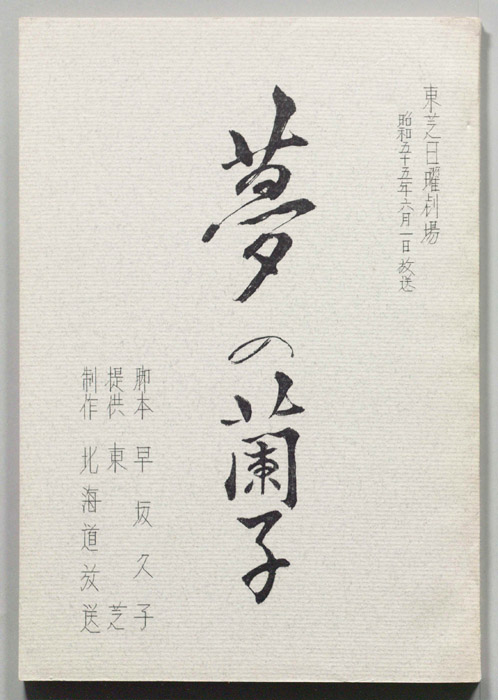 東芝日曜劇場
昭和五十五年六月一日放送
夢の蘭子
脚本 早坂久子
提供 東芝
制作 北海道放送